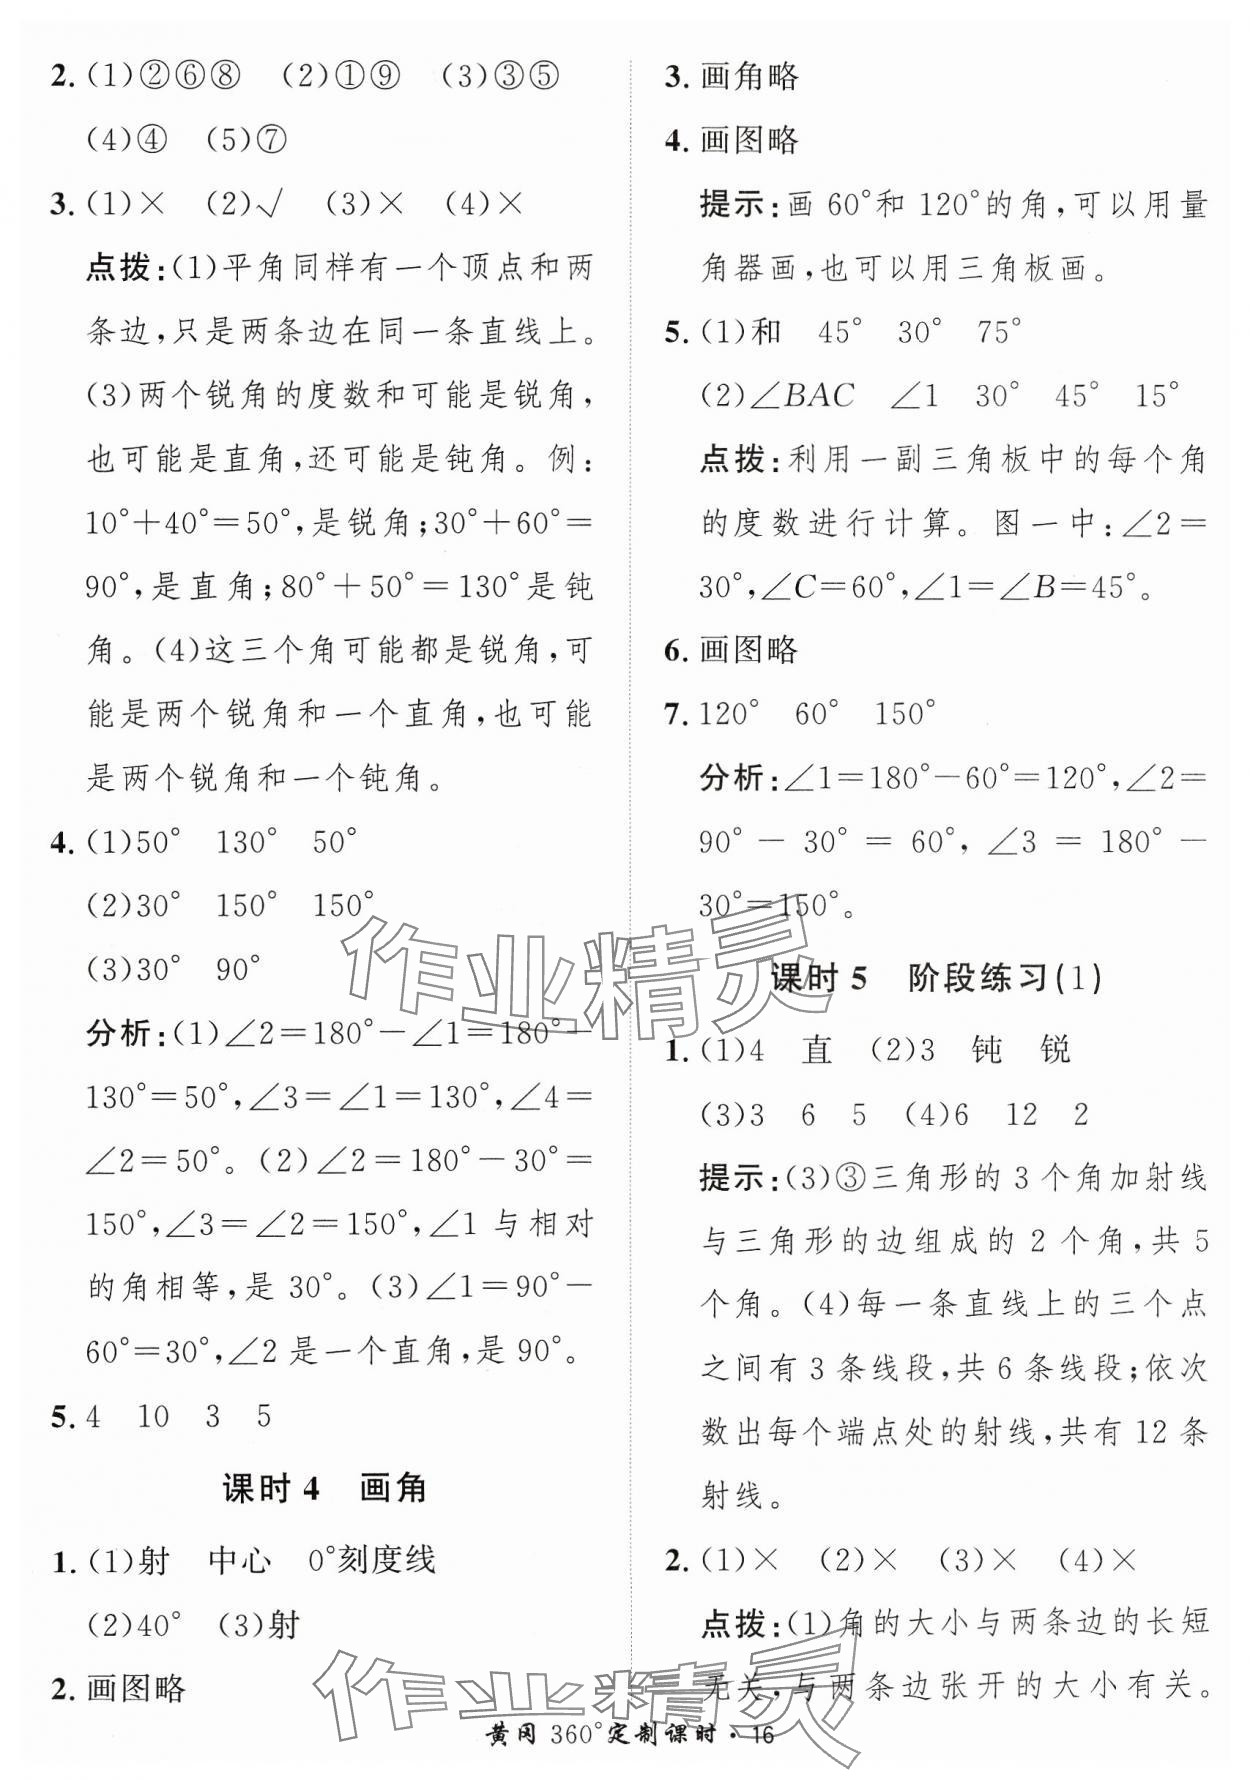 2. (1)②⑥⑧ (2)①⑨ (3)③⑤
(4)④ (5)⑦
3. (1)× (2)√ (3)× (4)×
点拨:(1)平角同样有一个顶点和两
条边,只是两条边在同一条直线上。
(3)两个锐角的度数和可能是锐角,
也可能是直角,还可能是钝角。例:
10°+40°=50°,是锐角;30°+60°=
90°,是直角;80°+50°=130°是钝
角。(4)这三个角可能都是锐角,可
能是两个锐角和一个直角,也可能
是两个锐角和一个钝角。
4. (1)50° 130° 50°
(2)30° 150° 150°
(3)30° 90°
分析:(1)∠2=180°-∠1=180°-
130°=50°,∠3=∠1=130°,∠4=
∠2=50°。(2)∠2=180°-30°=
150°,∠3=∠2=150°,∠1与相对
的角相等,是30°。(3)∠1=90°-
60°=30°,∠2是一个直角,是90°。
5. 4 10 3 5
课时4 画角
1. (1)射 中心 0°刻度线
(2)40° (3)射
2. 画图略
3. 画角略
4. 画图略
提示:画60°和120°的角,可以用量
角器画,也可以用三角板画。
5. (1)和 45° 30° 75°
(2)∠BAC ∠1 30° 45° 15°
点拨:利用一副三角板中的每个角
的度数进行计算。图一中:∠2=
30°,∠C=60°,∠1=∠B=45°。
6. 画图略
7. 120° 60° 150°
分析:∠1=180°-60°=120°,∠2=
90°-30°=60°,∠3=180°-
30°=150°。
课时5 阶段练习(1)
1. (1)4 直 (2)3 钝 锐
(3)3 6 5 (4)6 12 2
提示:(3)③三角形的3个角加射线
与三角形的边组成的2个角,共5
个角。(4)每一条直线上的三个点
之间有3条线段,共6条线段;依次
数出每个端点处的射线,共有12条
射线。
2. (1)× (2)× (3)× (4)×
点拨:(1)角的大小与两条边的长短
无关,与两条边张开的大小有关。
作业精灵
作业精灵
黄冈360°定制课时·16